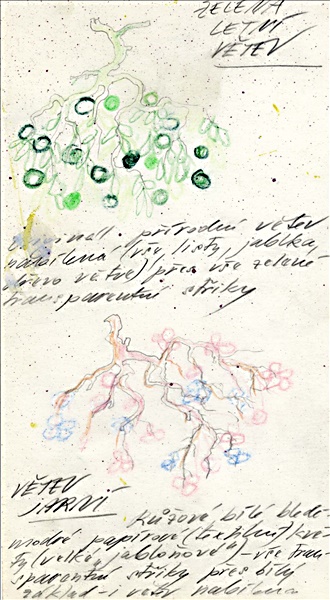 ZELENÁ
LETNÍ
VĚTEV
přírodní větev
nabílená (vše listy, jablka,
dřevo větve) přes vše zelené
transparentní stříky
VĚTEV
JARNÍ
Růžové bílé bledě-
modré papírové (textilní) kvě-
ty (velké „jabloňové") – vše tran-
sparentní stříky přes bílý
základ – i větv nabílena